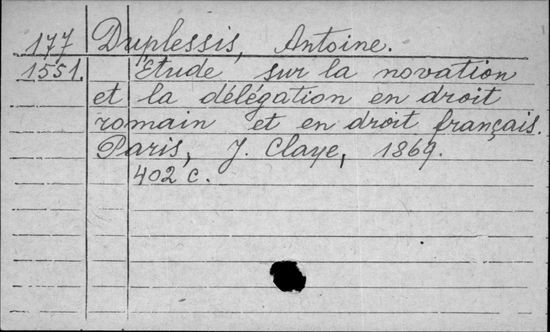 177 Duplessis, Antoine.
1551. Étude sur la novation
et la délégation en droit
romain et en droit français.
Paris, J. Claye, 1869.
402 c.